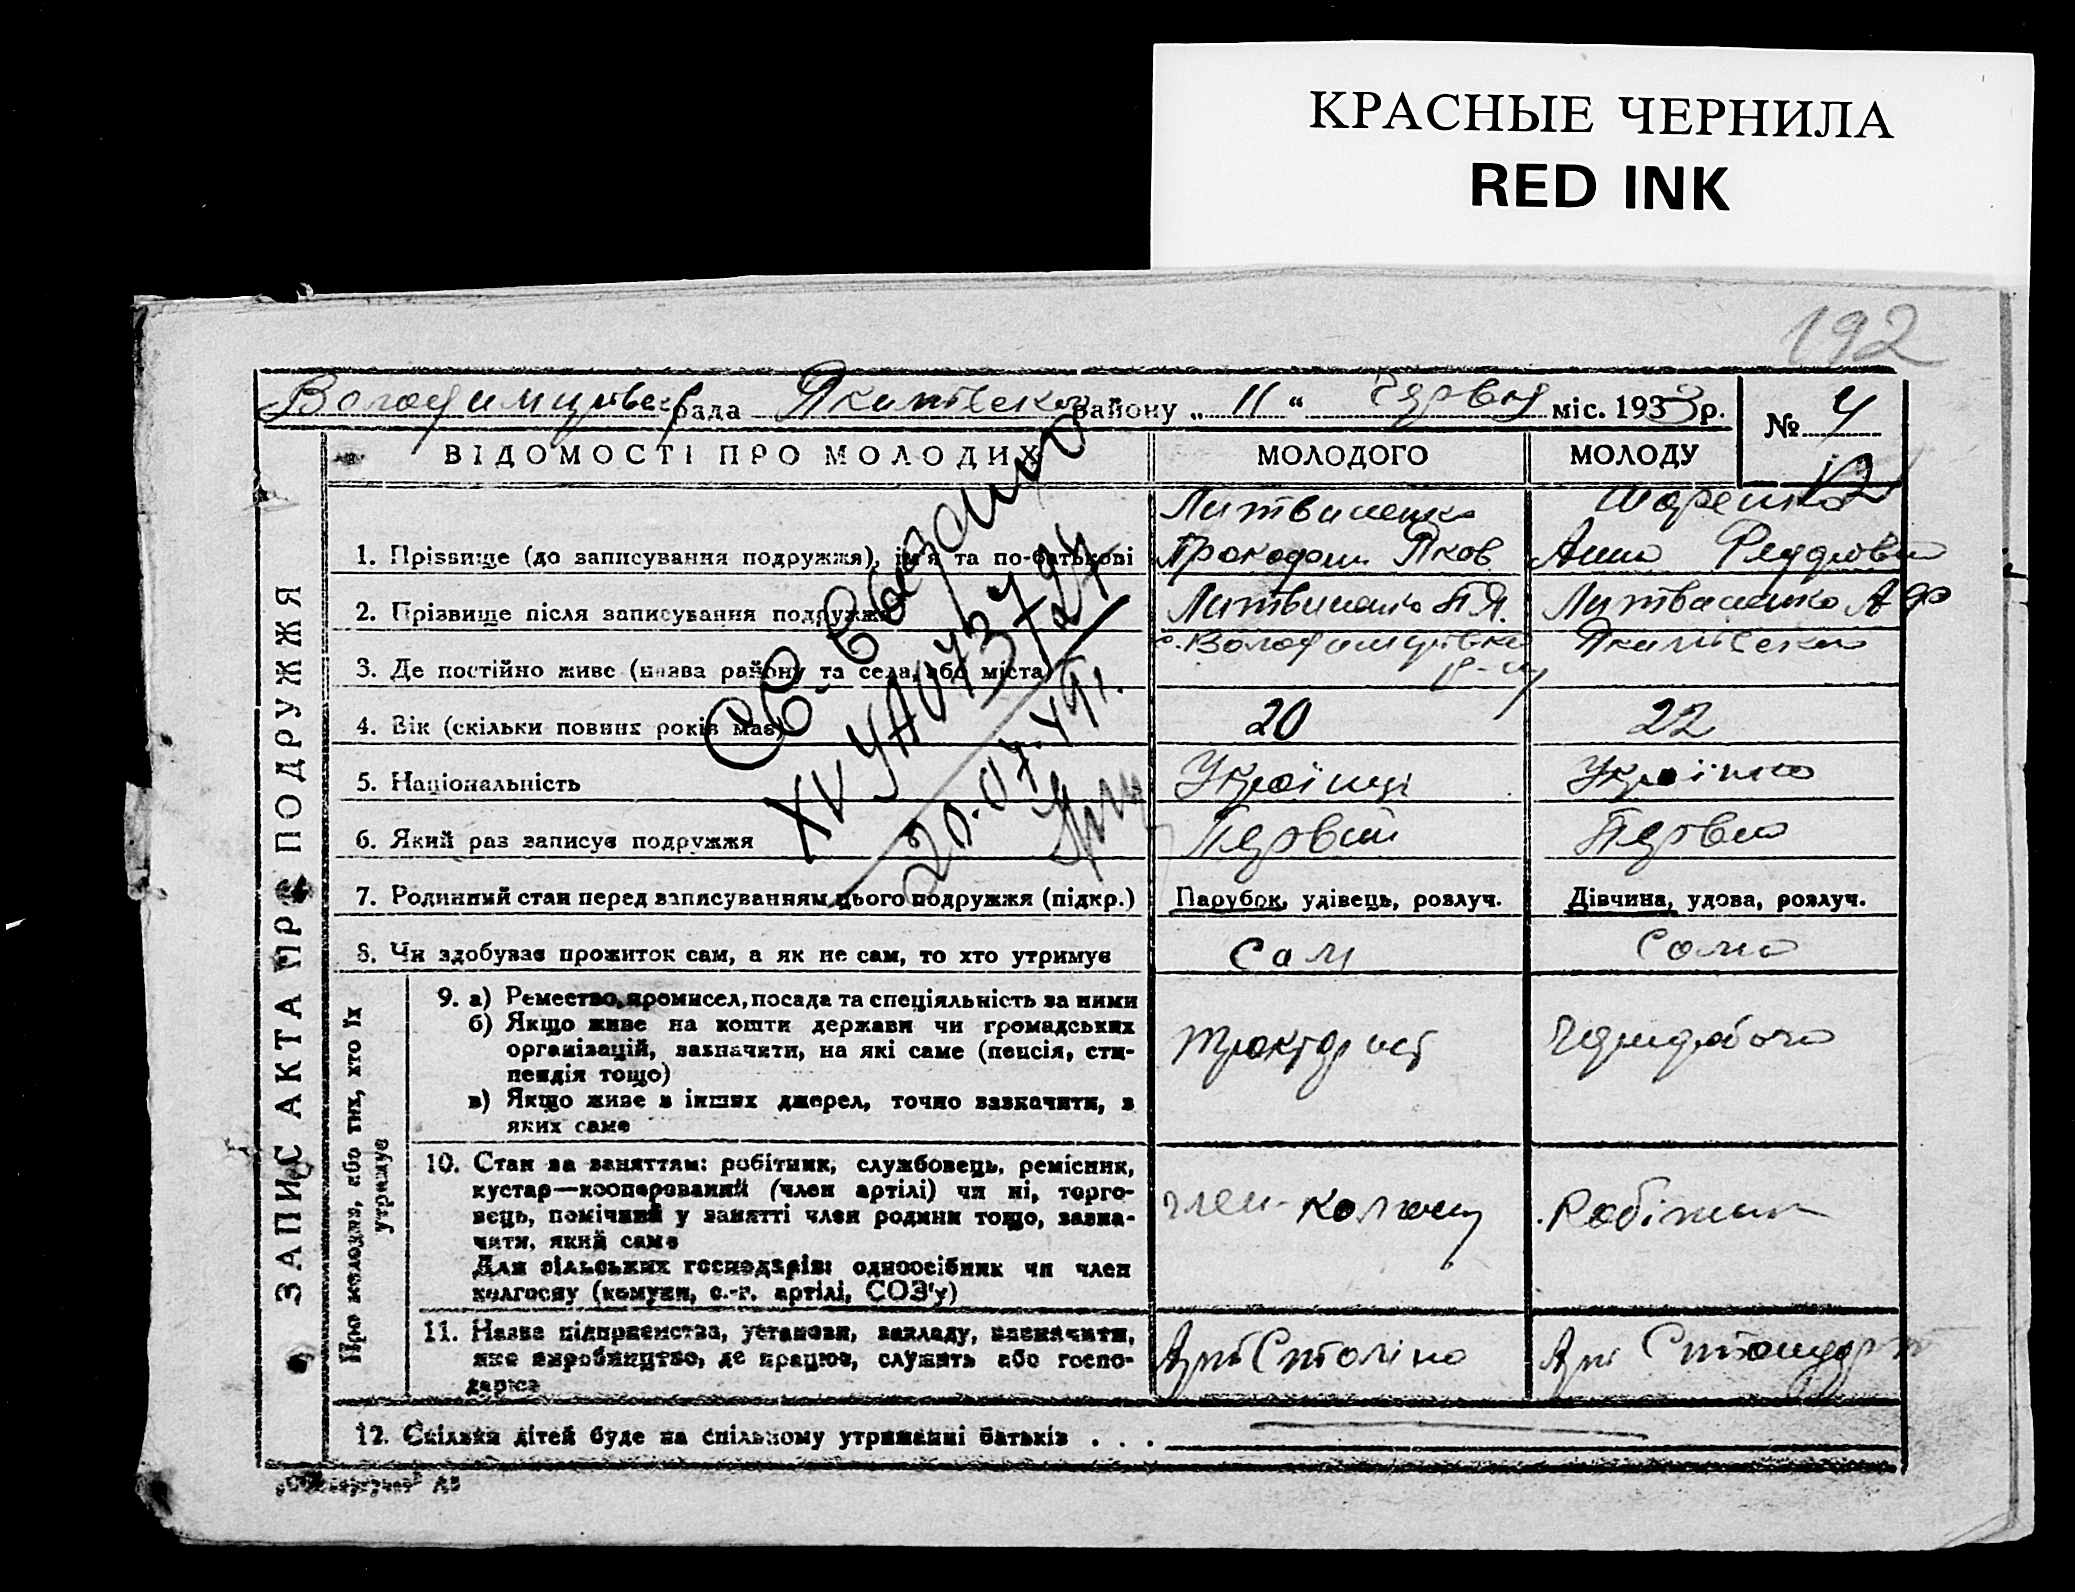 КРАСНЫЕ ЧЕРНИЛА
RED INK
192
рада району „ 11 “ 1933 р. № 4
ВІДОМОСТІ ПРО МОЛОДИХ МОЛОДОГО МОЛОДУ
Литвиненко
1. Прізвище (до записування подружжя), ім'я та по-батькові Яков Анна
2. Прізвище після записування подружжя Литвиненко П Я. Литвиненко А Ф
3. Де постійно живе (назва району та села, або міста)
4. Вік (скільки повних років має) 20 22
5. Національність Українка
6. Який раз записує подружжя Первий Перва
7. Родинний стан перед записуванням цього подружжя (підкр.) Парубок, удівець, розлуч. Дівчина, удова, розлуч.
8. Чи здобуває прожиток сам, а як не сам, то хто утримує Сам Сама
9. а) Ремество, промисел, посада та спеціяльність за ними
б) Якщо живе на кошти держави чи громадських
організацій, зазначити, на які саме (пенсія, сти-
пендія тощо)
в) Якщо живе з інших джерел, точно зазначити, з
яких саме
тракторист Чернороботча
10. Стан за заняттям: робітник, службовець, ремісник,
кустар—кооперований (член артілі) чи ні, торго-
вець, помічний у занятті член родини тощо, зазна-
чити, який саме
Для сільських господарів: одноосібник чи член
колгоспу (комуни, с.-г. артілі, СОЗ'у)
член- Робітник
11. Назва підприємства, установи, закладу, зазначити,
яке виробництво, де працює, служить або госпо-
дарює
Арт Сталіна
12. Скільки дітей буде на спільному утриманні батьків . . .
ЗАПИС АКТА ПРО ПОДРУЖЖЯ
Про молодих, або тих, хто їх
утримує
Св. выдано
20.07.